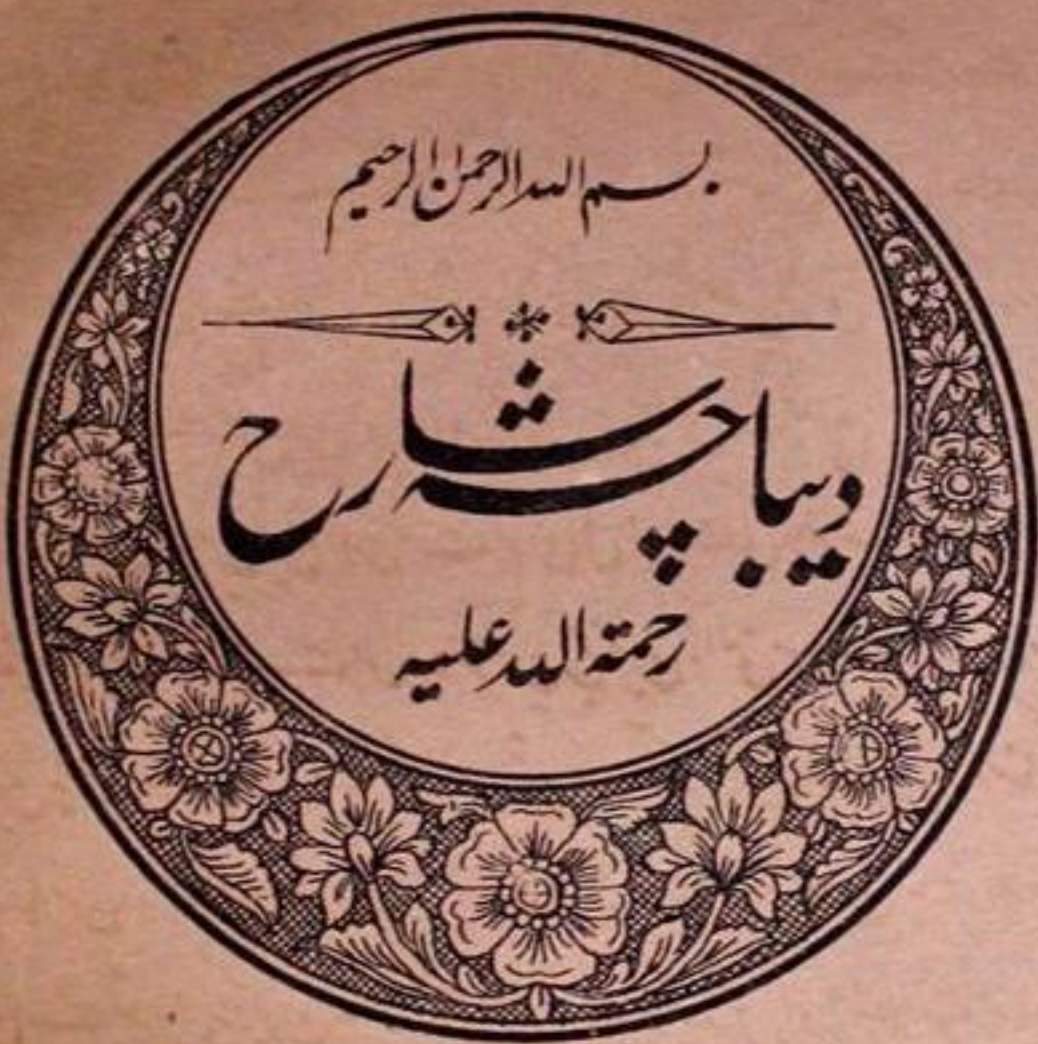 بسم اللہ الرحمن الرحیم
دیباچہ شارح
رحمتہ اللہ علیہ